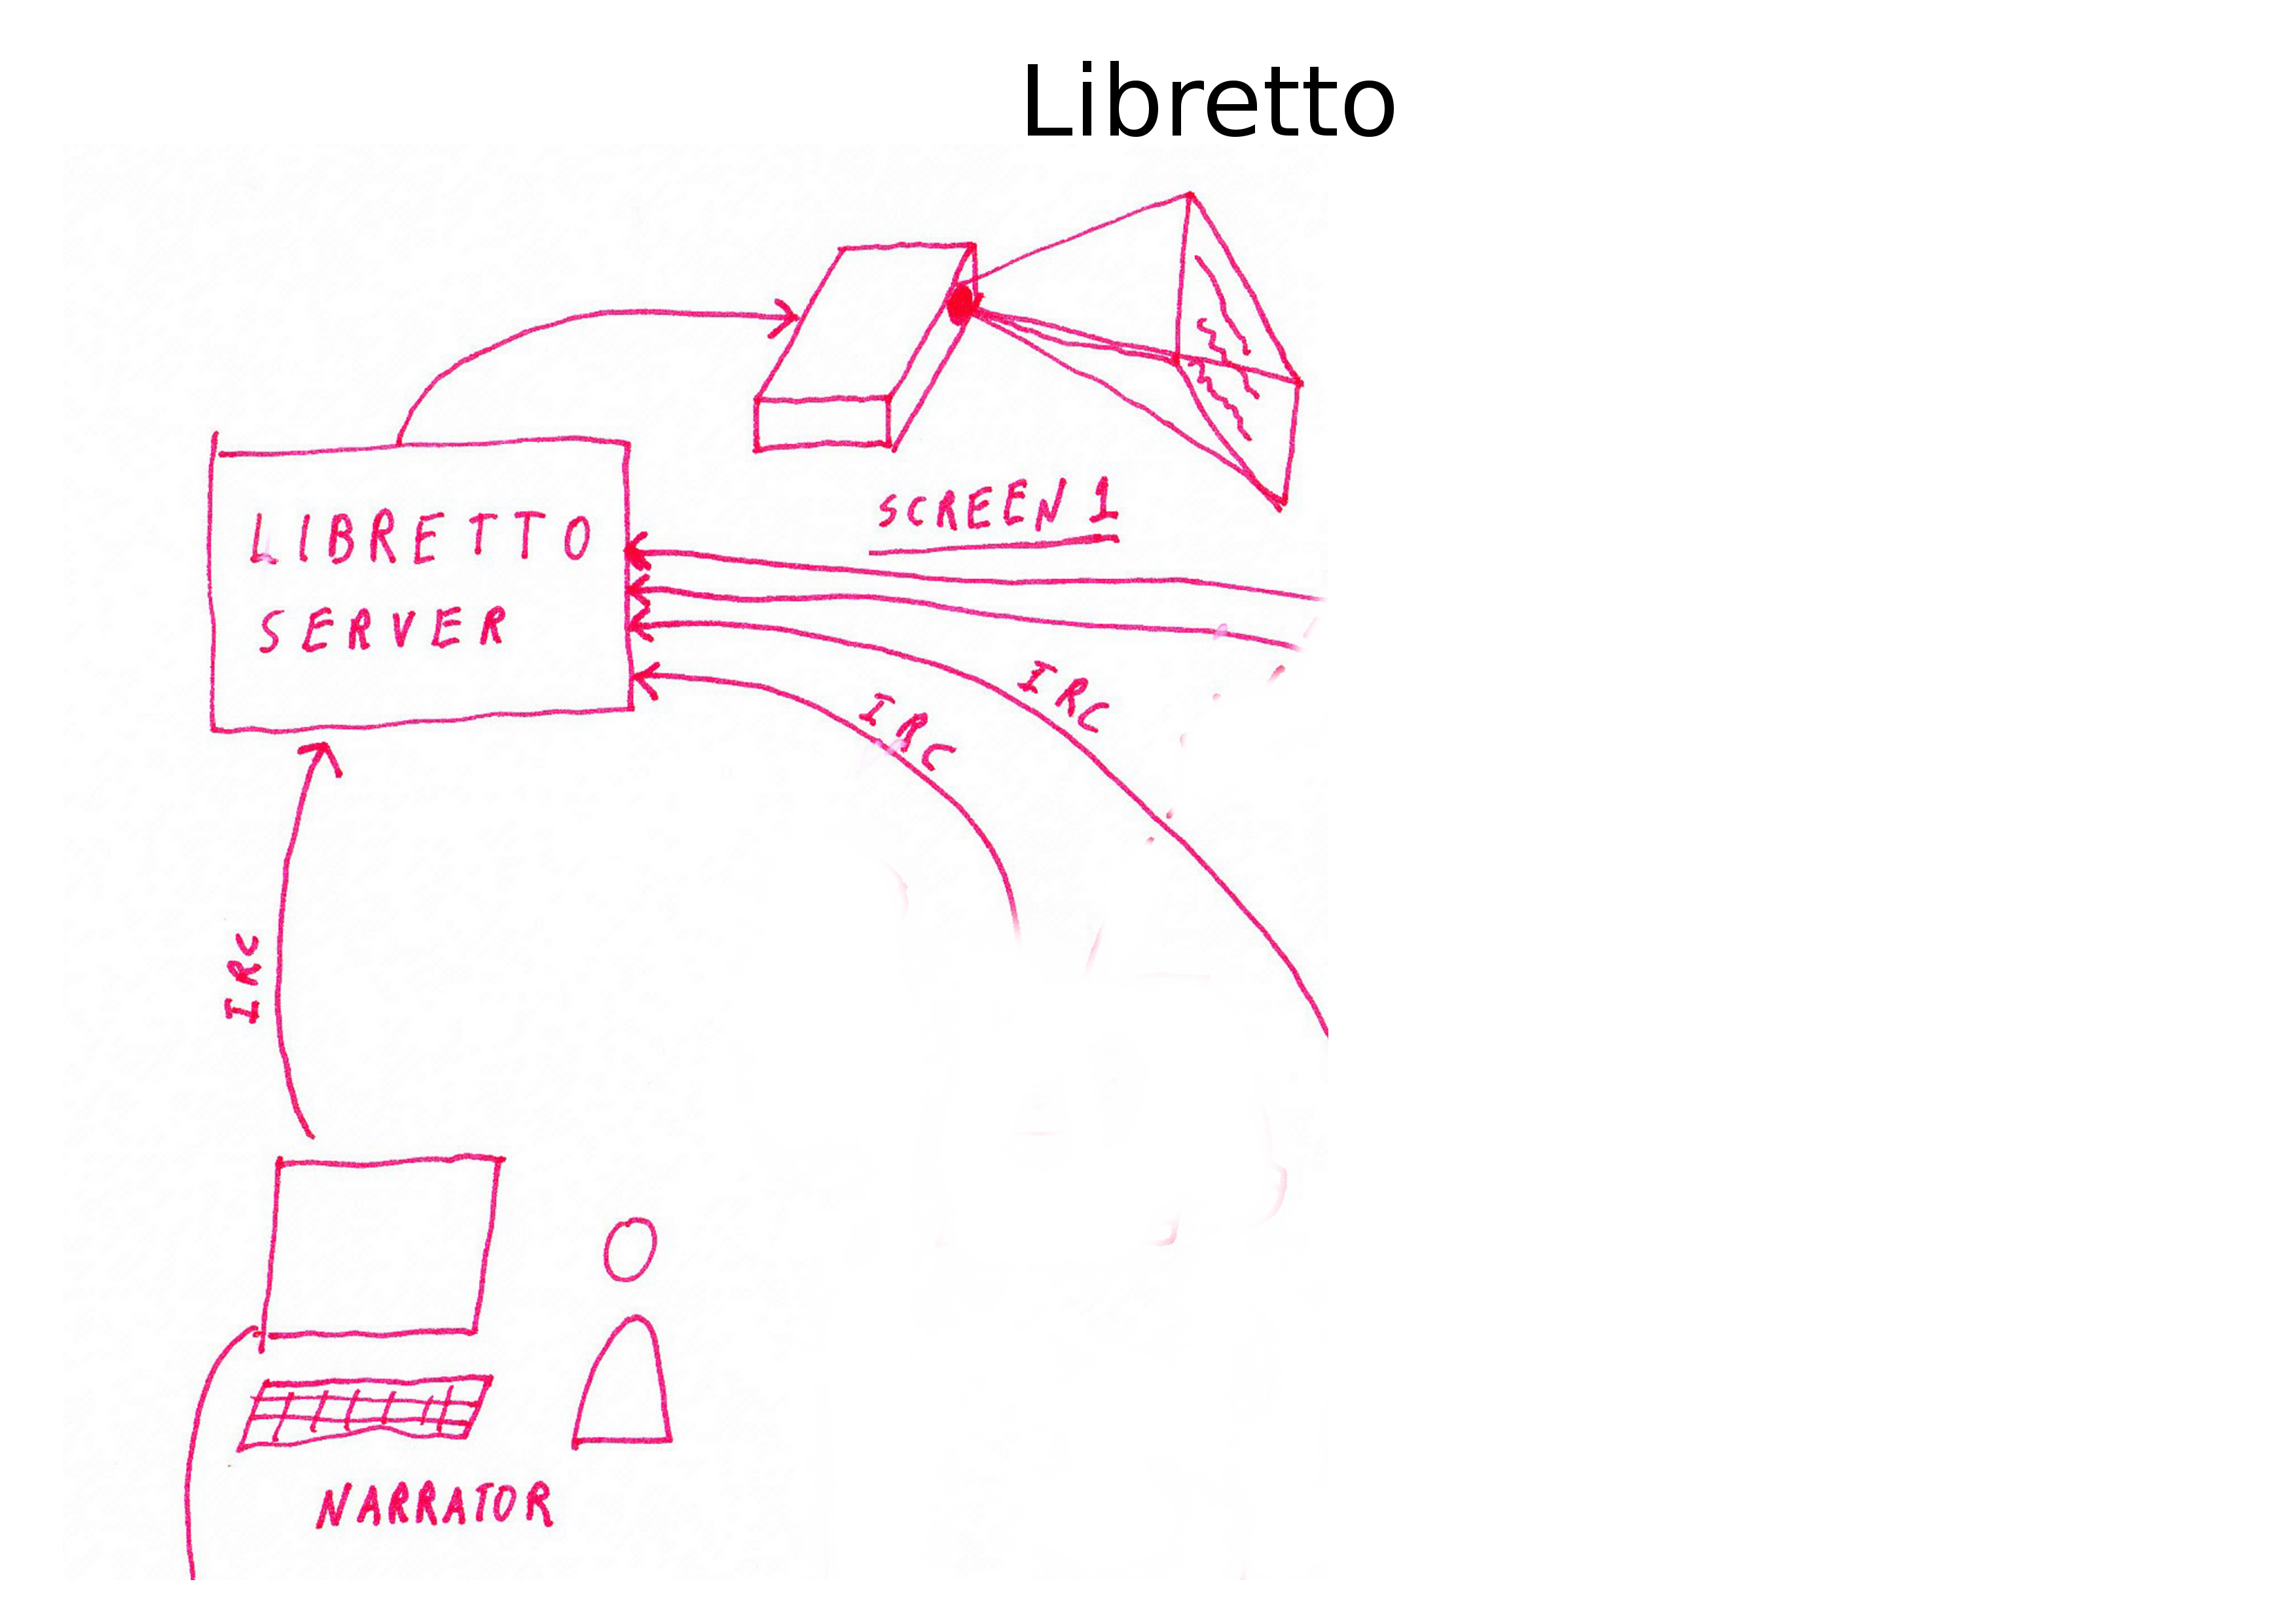 Libretto
SCREEN 1
LIBRETTO
SERVER
IRC
IRC
IRC
NARRATOR